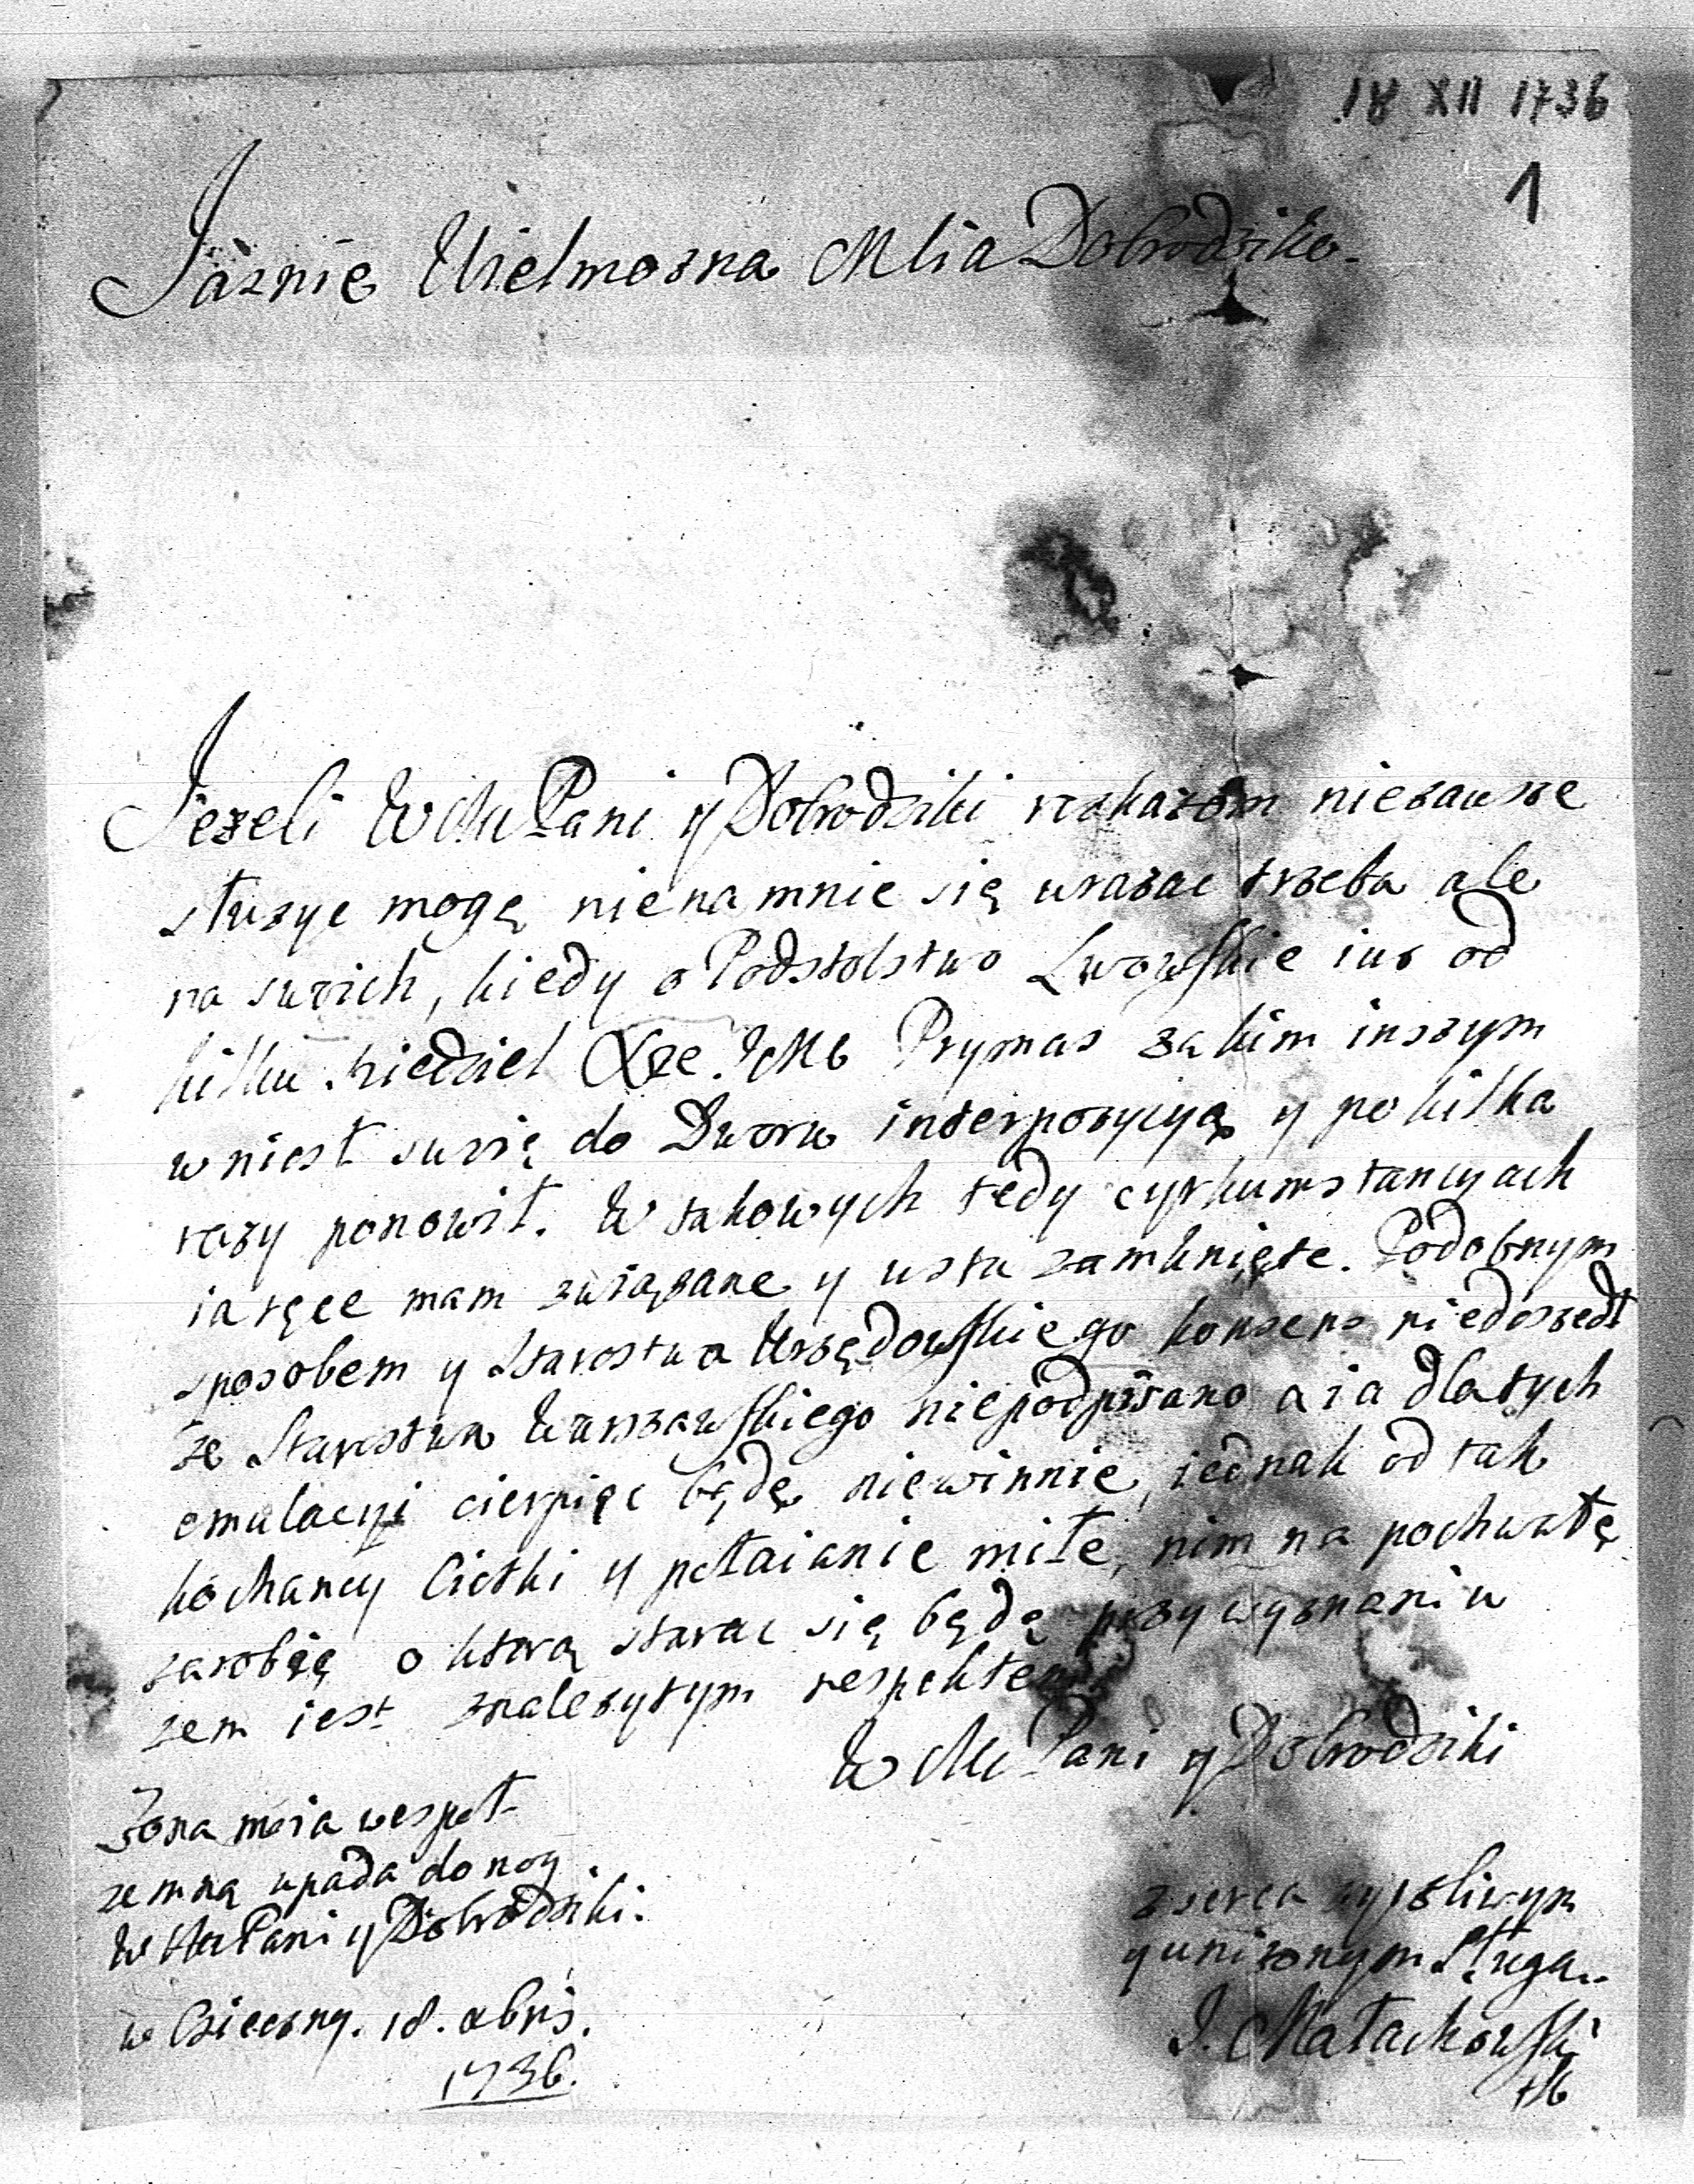 18 XII 1736
1
Jasnie Wielmozna Mścia Dobrodziko
Jezeli WMPani y Dobrodziki roskazom niezawsze
słuzyc mogę nienamnie się urazac trzeba ale
na swoich, kiedy o Podstolstwo Lwowskie iuz od
kilku niedziel Xże JMć Prymas zakim inszym
wniosł swoię do Dworu interpozycyą y pokilka
razy ponowił. W takowych tedy cyrkumstancyach
ia ręce mam związane y usta zamknięte. Podobnym
sposobem y Starostwa Urzędowskiego konsens niedoszedł
że Starostwa Warszawskiego niepodpisano a ia dlatych
emulacyi cierpięc będę niewinnie, jednak od tak
kochaney Ciotki y połaianie miłe, nim na pochwałę
zarobię o ktorą starac się będę przy wyznaniu
zem iest znalezytym respektem
WM Pani y Dobrodziki
Zona moia wespoł
zemną upada do nog
WMPani y Dobrodziki.
z serca zyczliwym
y unizonym sługa
J. Małachowski
w Bieczny. 18. xbris.
1736.